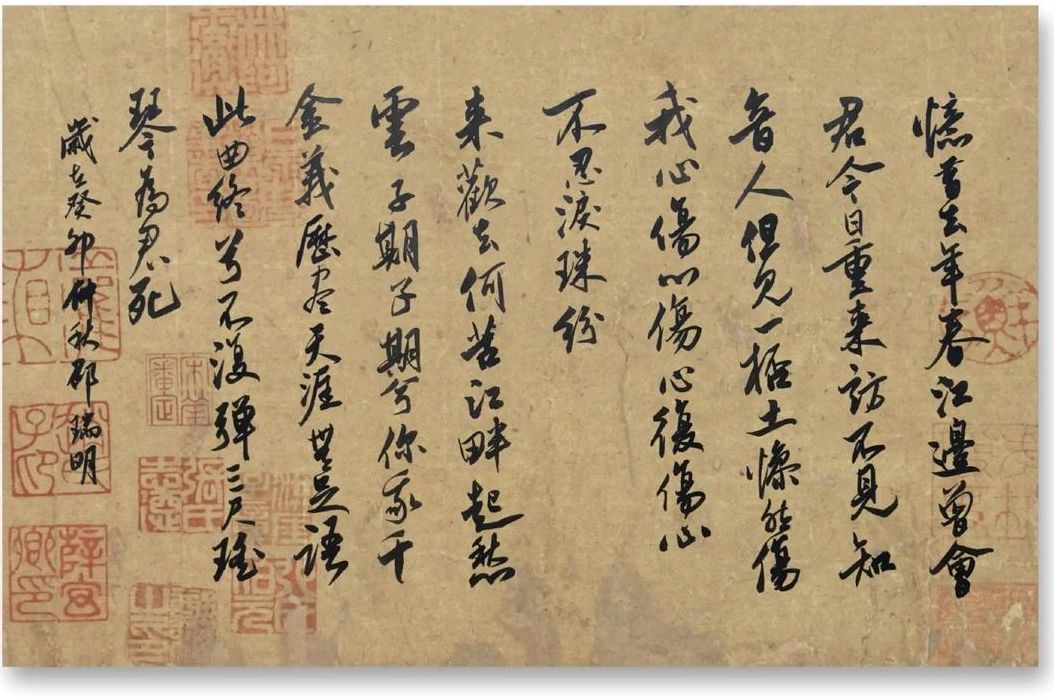 憶昔去年春江邊曾會
君今日重来訪不見知
音人但見一抔土慘然傷
我心傷心傷心復傷心
不忍淚珠紛
来歡去何苦江畔起愁
雲子期子期兮你我千
金義歷盡天涯無足語
此曲終兮不復彈三尺瑤
琴為君死
歲在癸卯仲秋邵瑞明